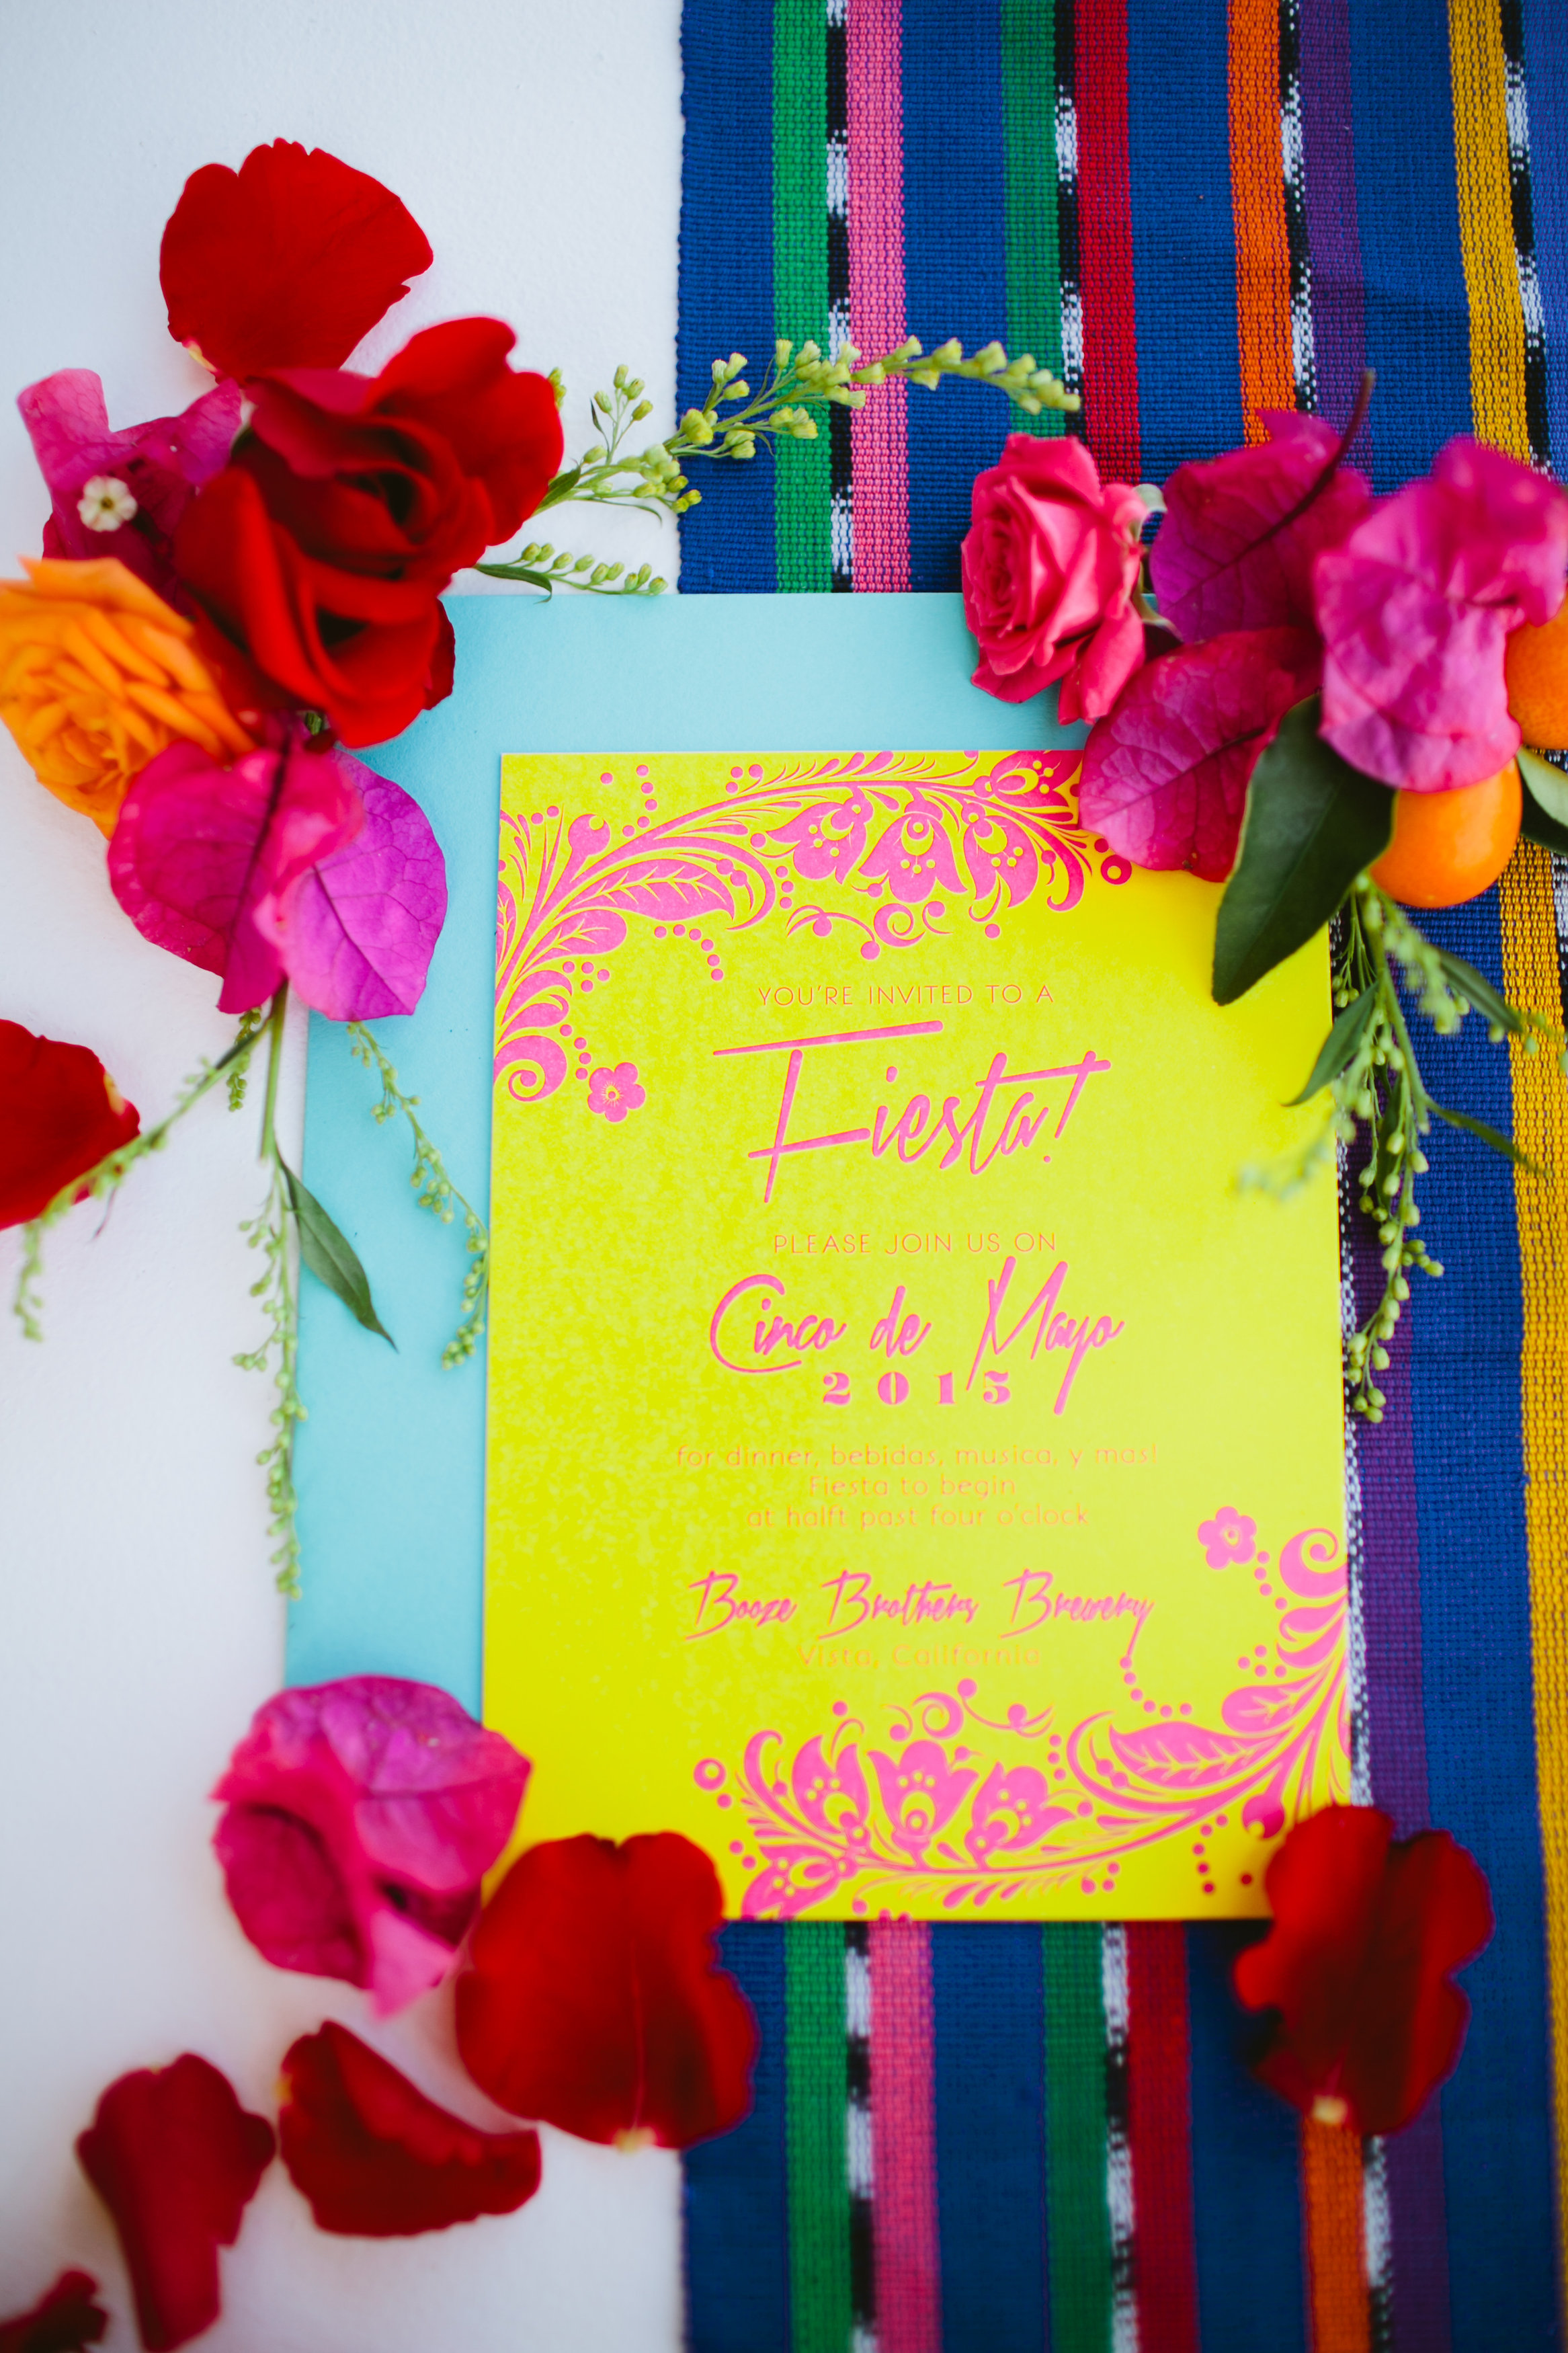 YOU'RE INVITED TO A
Fiesta!
PLEASE JOIN US ON
Cinco de Mayo
2015
for dinner, bebidas, musica, y mas!
Fiesta to begin
at halft past four o'clock
Booze Brothers Brewery
Vista, California